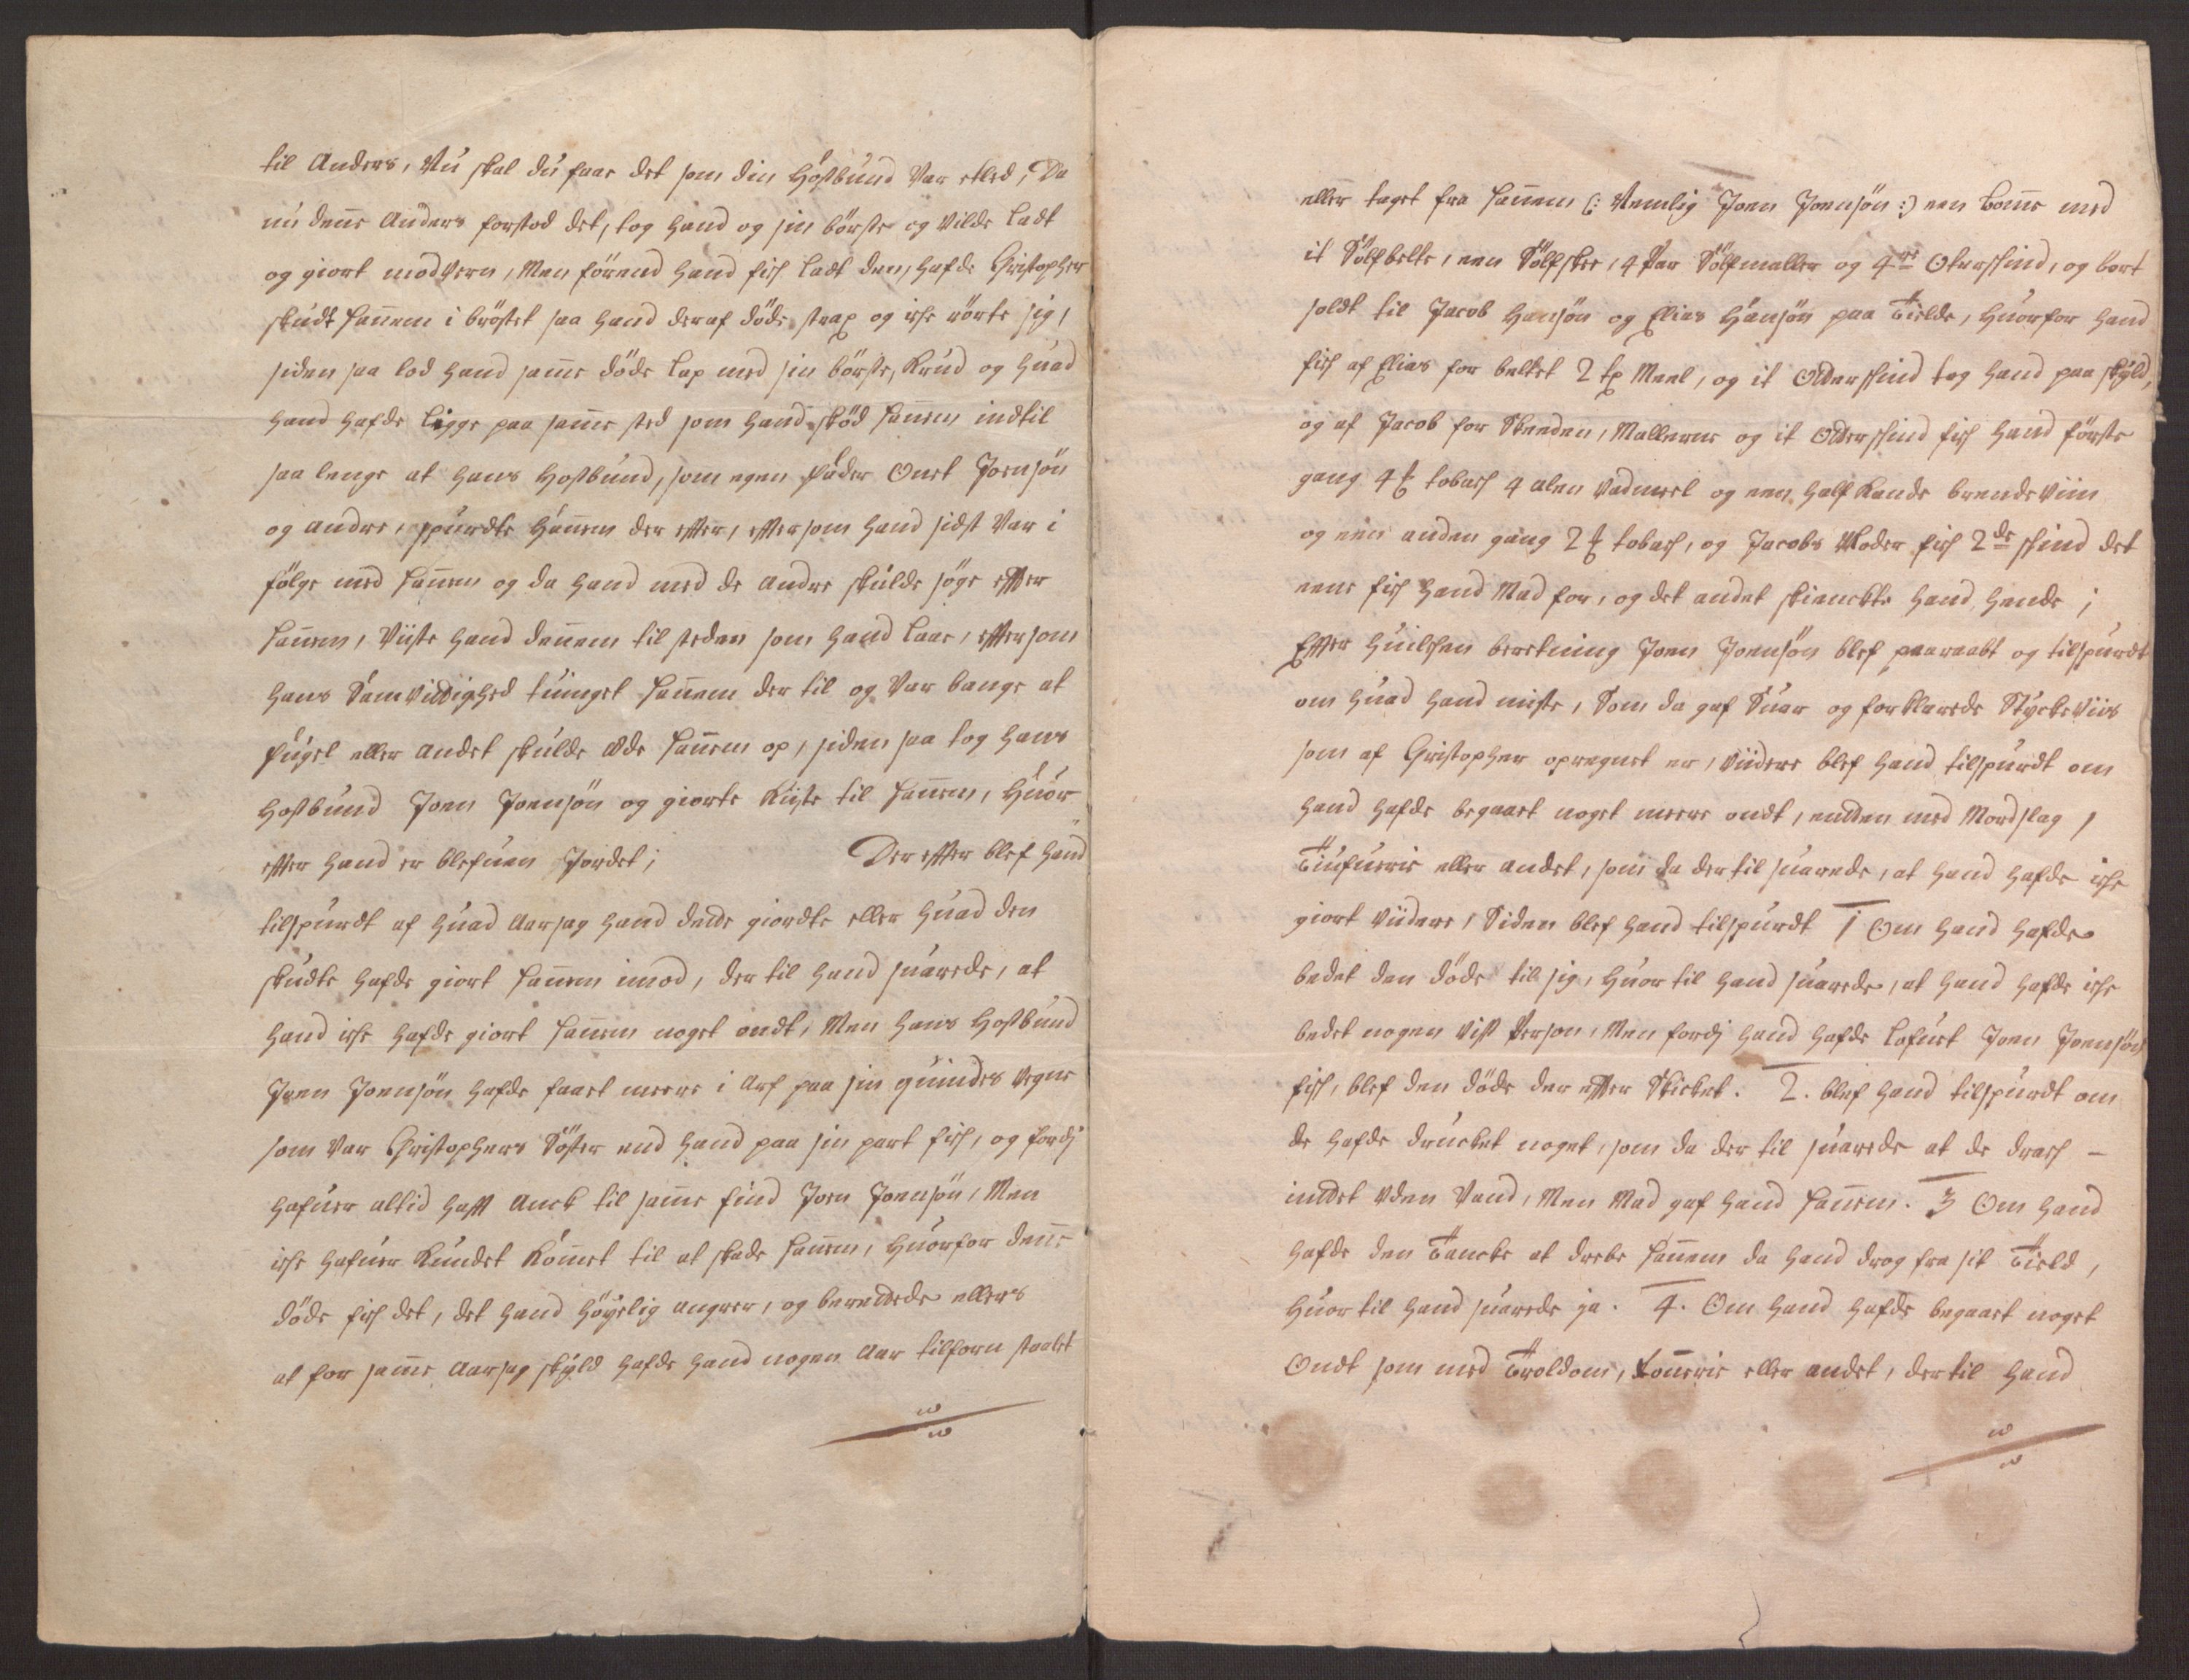 til Anders, Nu skal du faae det som din Hoßbund var etled, Da
nu denne Anders forstod det, tog hand og sin börste og vilde ladt
og giort modvern, Men förend hand fich ladt den, hafde Christopher
skudt hannem i bröstet saa hand deraf döde strax og iche rörte sig,
siden saa lod hand samme döde Lap med sin börste, Krud og huad
hand hafde ligge paa samme sted som hand sköd hannem indtil
saa lenge at hans Hoßbund, som egen fader Ouet Joensön
og andre, spurdte hannem der efter, eftersom hand sidst var i
fölge med hannem og da hand med de andre skulde söge efter
hannem, viiste hand dennem til steden som hand laae, eftersom
hans Samvittighed tuinget hannem der til og var bange at
fugel eller andet skulde æde hannem op, siden saa tog hans
Hoßbund Joen Joensön og giorte Kiiste til hannem, Huor
efter hand er blefuen Jordet; Der efter blef hand
tilspurdt af huad Aarsag hand dette giordte eller huad den
skudte hafde giort hannem imod, der til hand suarede, at
hand iche hafde giort hannem noget ondt, Men hans Hoßbund
Joen Joensön hafde faaet meere i Arf paa sin quindes vegne
som var Christophers Söster end hand paa sin part fich, og fordj
hafuer altid hafft Anck til samme find Joen Joensön, Men
iche hafuer kundet kommet til at skade hannem, huorfor denne
döde fich det, det hand höyelig angrer, og berettede ellers
at for samme Aarsag skyld hafde hand nogen Aar tilforn staalet
eller taget fra hannem (: Nemlig Joen Joensön :) een Komme med
it Sölfbelte, een Sölfskee, 4 Par Sölfmaller og 4re Oterskind, og bort
soldt til Jacob Hansön og Elias Hansön paa Tielde, huorfor hand
fich af Elias for beltet 2 tp Meel, og it Otterskind tog hand paa skyld,
og af Jacob for Skeeden, Mallerne og it Otterskind fich hand förste
gang 4 ℔ tobach 4 alen vadmel og een half Kande brendeviin
og een anden gang 2 ℔ tobach, og Jacobs Moder fich 2de skind det
eene fich hand Mad for, og det andet skienckte hand hende;
Efter huilchen beretning Joen Joensön blef paaraabt og tilspurdt
om huad hand miste, Som da gaf Suar og forklarede Styckeviis
som af Christopher opregnet er, viidere blef hand tilspurdt om
hand hafde begaaet noget meere ondt, entten med Mordslag,
Tiufuerie eller andet, som da der til suarede, at hand hafde iche
giort viidere, Siden blef hand tilspurdt 1 Om hand hafde
bedet den döde til sig, huor til hand suarede, at hand hafde iche
bedet nogen vist Person, Men fordj hand hafde lofuet Joen Joensön
fisch, blef den döde der efter Skicket. 2. blef hand tilspurdt om
de hafde drucket noget, som da der til suarede at de drach –
inttet uden Vand, Men Mad gaf hand hannem. 3 Om hand
hafde den Tancke at drebe hannem da hand drog fra sit Tield,
huor til hand suarede ja. 4. Om hand hafde begaaet noget
Ondt som med Troldom, eller andet, der til hand